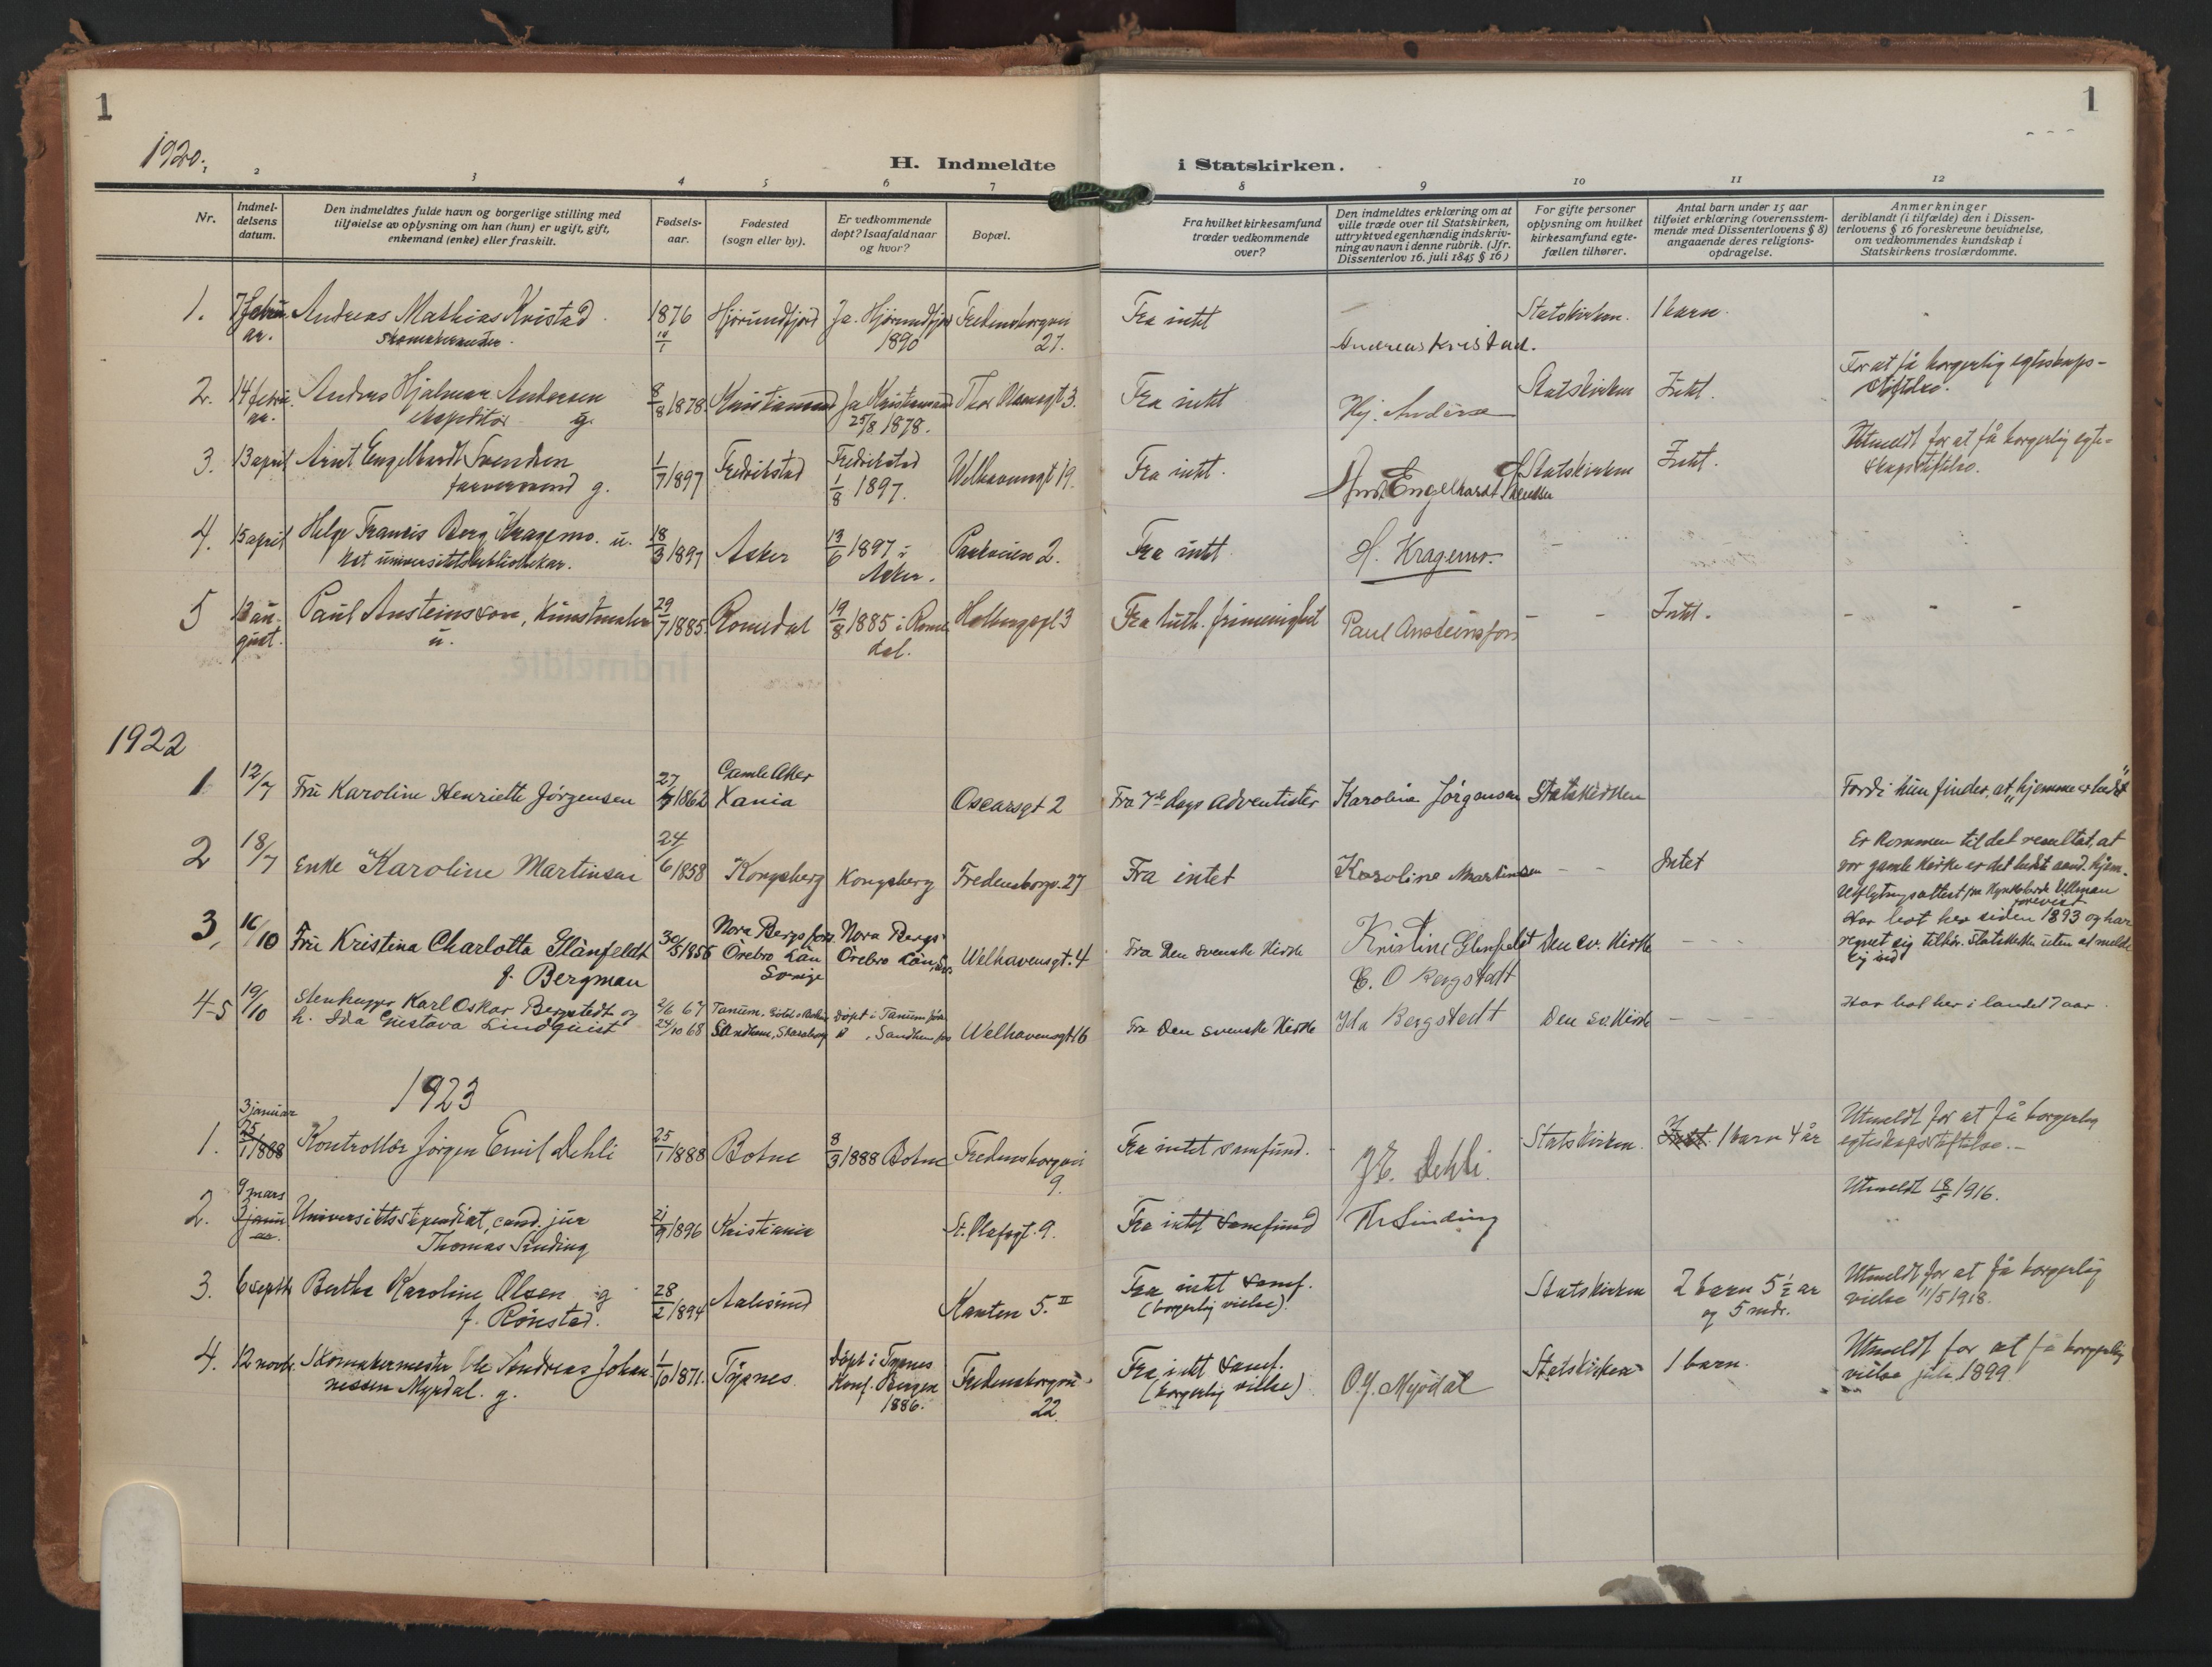 1
1
1920.
H. Indmeldte i Statskirken.
2 3 4 5 6 7 8 9 10 11 12
Nr.
Indmel-
delsens
datum.
Den indmeldtes fulde navn og borgerlige stilling med
tilføielse av oplysning om han (hun) er ugift, gift,
enkemand (enke) eller fraskilt.
Fødsels-
aar.
Fødested
(sogn eller by).
Er vedkommende
døpt? Isaafald naar
og hvor?
Bopæl.
Fra hvilket kirkesamfund
træder vedkommende
over?
Den indmeldtes erklæring om at
ville træde over til Statskirken,
uttrykt ved egenhændig indskriv-
ning av navn i denne rubrik. (Jfr.
Dissenterlov 16. juli 1845 § 16)
For gifte personer
oplysning om hvilket
kirkesamfund egte-
fællen tilhører.
Antal barn under 15 aar
tilføiet erklæring (overensstem-
mende med Dissenterlovens § 8)
angaaende deres religions-
opdragelse.
Anmerkninger
deriblandt (i tilfælde) den i Dissen-
terlovens § 16 foreskrevne bevidnelse,
om vedkommendes kundskap i
Statskirkens troslærdomme.
1. 7 febru- Andreas Mathias Kvistad 1876 Hjørundfjord Ja. Hjørundfjord Fredensborgvei Fra intet Statskirken. 1 barn.
ar. Skomakermester. 1890 27. Andreas Kvistad.
2. 14 febru- Anders Hjalmar Andersen 8/8 1878. Kristiansund Ja Kristiansund Thor Olsensgt 3. Fra intet Hj. Andersen Statskirken Intet. For at få borgerlig egteskaps-
ar. ekspeditør g. 25/8 1878. stiftelse.
3. 13 april Arnt Engelhardt Svendsen 1/7 1897 Fredrikstad Fredrikstad Welhavensgt 19. Fra intet. Arnt Engelhardt Svendsen Statskirken Intet. Utmeldt for at få borgerlig egte-
farvermand g. 1/8 1897. skapsstiftelse.
4. 15 april Helge Francis Berg Kragemo. u. 18/3 1897 Asker 13/6 1897 i Parkveien 2. Fra intet H. Kragemo. -
universitetsbibliothekar. Asker.
5 13 au- Paul Ansteinsson, Kunstmaler 29/7 1885. Romedal 19/8 1885 i Rome- Holbergspl 3 Fra luth. frimenighet Paul Ansteinsson - - Intet. - - -
gust. u. dal.
1922
1 12/7 Fru Karoline Henriette Jörgensen 27/7 1862 Gamle Aker
Xania Oscarsgt 2 Fra 7de dags adventister Karoline Jörgensen Statskirken Fordi hun finder, at "hjemme er bedst"
2 18/7 Enke Karoline Martinsen 24/6 1858 Kongsberg Kongsberg Fredensborgv. 27 Fra intet Karoline Martinsen - - Intet Er kommen til det resultat, at
vor gamle kirke er det bedste aand. hjem.
Ullman
forevist
3, 16/10 Fru Kristina Charlotta Glänfeldt 30/5 1856 Nora Bergsfors. Nora Bergs- Welhavensgt. 4 Fra Den svenske Kirke Kristine Glenfeldt Den sv. Kirke - - - Har bot her siden 1893 og har
f. Bergman Örebro Län Örebro Län, Sv. regnet sig tilhør. Statskirken uten at melde
Sverige sig ind
4-5 19/10 Stenhugger Karl Oskar Bergstedt og 2/6 67 Tanum, døpt i Tanum C. O Bergstedt Har bot her i landet 7 aar.
h. Ida Gustava Lindquist 24/10 68 Sandhem, Skaraborg Sandhem Welhavensgt 16 Fra Den svenske Kirke Ida Bergstedt Den sv. Kirke - - -
1923
3 januar
1. 25/1 1888 Kontrollør Jørgen Emil Dehli 25/1 1888 Botne 8/3 1888 Botne Fredensborgvei Fra intet samfund. J E. Dehli. Statskirken. Intet. 1 barn 4 år Utmeldt for at få borgerlig
9. egteskapsstiftelse.-
9 mars
2. 3 janu- Universitetsstipendiat, cand. jur 21/9 1896 Kristiania St. Olafsgt. 9. Fra intet samfund Th Sinding Utmeldt 18/5 1916.
ar. Thomas Sinding
3. 6 septb. Berthe Karoline Olsen g 28/2 1894 Aalesund Kanten 5. II Fra intet samf. Statskirken 2 barn 5 ½ ar Utmeldt for at få borgerlig
f. Rønstad. (borgerlig vielse). og 5 mdr. vielse 11/5 1918.
4. 12 novb. Skomakermester Ole Andreas Johan- 1/10 1871. Tysnes døpt i Tysnes Fredensborgvei Fra intet samf. O. J. Myrdal Statskirken 1 barn. Utmeldt for at få borgerlig
nessen Myrdal. g. Konf. Bergen 22. (borgerlig vielse) vielse juli 1899.
1886.